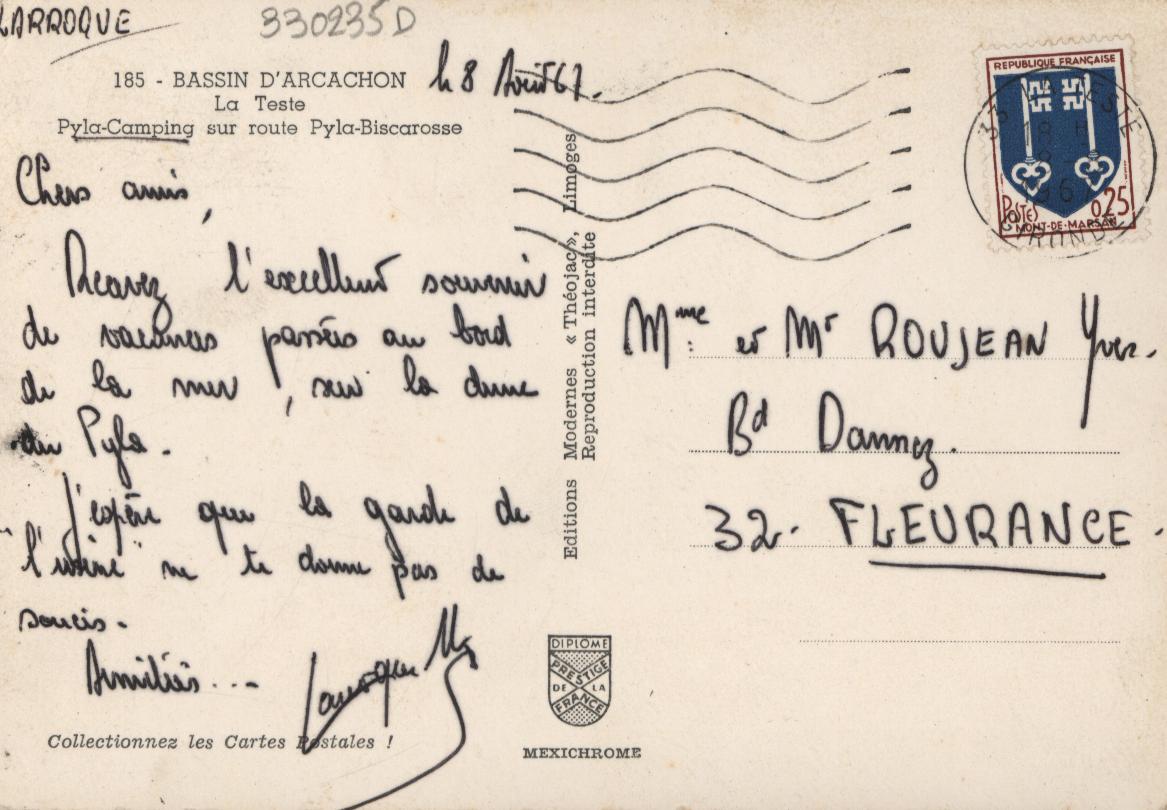 LARROQUE
330235D
185 - BASSIN D'ARCACHON
La Teste
Pyla-Camping sur route Pyla-Biscarosse
le 8 Août 67.
Chers amis,
Recevez l'excellent souvenir
de vacances passées au bord
de la mer, sur la dune
du Pyla.
J'espère que la garde de
"l'usine" ne te donne pas de
soucis.
Amitiés...
Larroque
Collectionnez les Cartes Postales !
Editions Modernes « Théojac », Limoges
Reproduction interdite
DIPLÔME
PRESTIGE
DE LA
FRANCE
MEXICHROME
REPUBLIQUE FRANÇAISE
POSTES
0,25
MONT-DE-MARSAN
33 LA TESTE
18 H
8
GIRONDE
Mme et Mr ROUJEAN Yves.
Bd Dannez.
32 - FLEURANCE.